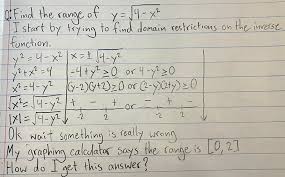 Q: Find the range of y = √4-x²
I start by trying to find domain restrictions on the inverse
function.
y² = 4-x² | x = ± √4-y²
y² + x² = 4 | -4+y² ≥ 0 or 4-y² ≥ 0
x² = 4-y² | (y-2)(y+2) ≥ 0 or (2-y)(2+y) ≥ 0
√x² = √4-y² | + - + or - + -
|x| = √4-y² | -2 2 -2 2
Ok wait something is really wrong
My graphing calculator says the range is [0,2]
How do I get this answer?